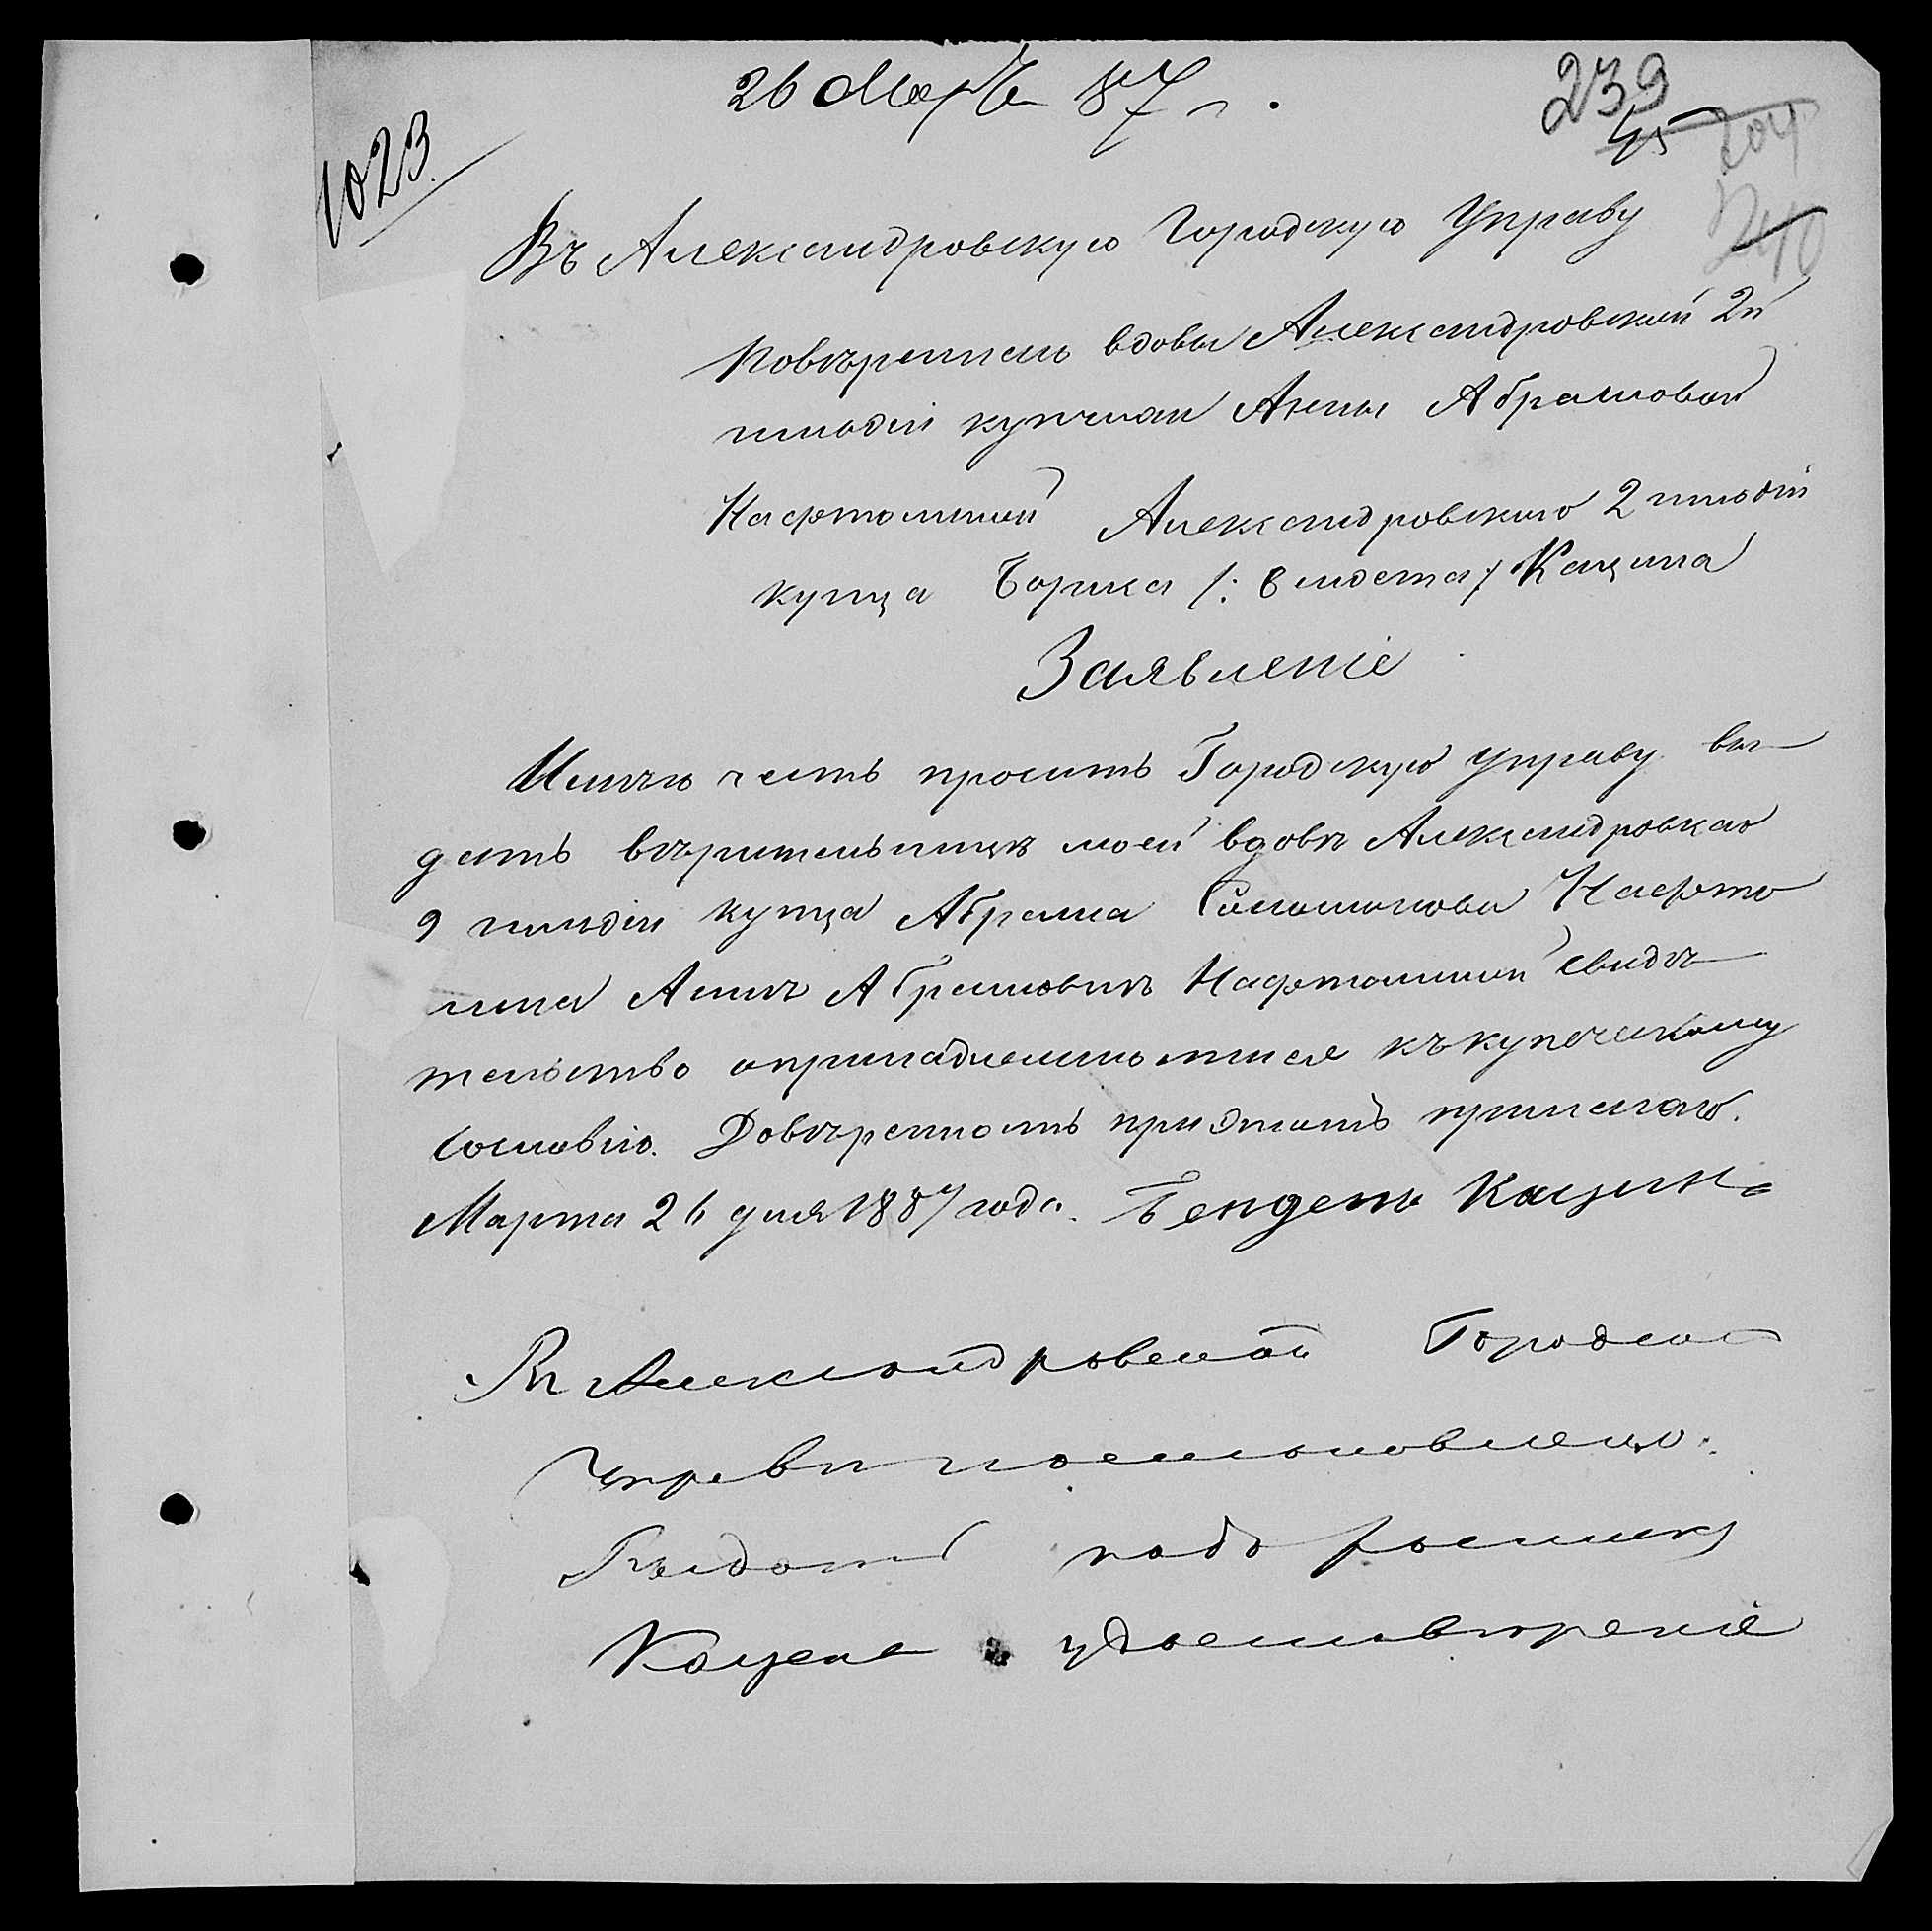 26 Мар 87 г.
239
45
204
240
1023.
Въ Александровскую Городскую Управу
Повѣреннаго вдовы Александровской 2й
гильдіи купчихи Анны Абрамовой
Нафтолиной Александровскаго 2 гильдіи
купца Бориса /: Бендета :/ Кацина
Заявленіе
Имѣю честь просить Городскую Управу вы-
дать вѣрительницѣ моей вдовѣ Александровскаго
2 гильдіи купца Абрама Соломонова Нафто
лина Аннѣ Абрамовнѣ Нафтолиной свидѣ-
тельство о принадлежности ея къ купеческому
сословію. Довѣренность при этомъ прилагаю.
Марта 26 дня 1887 года. Бендетъ Кацинъ
Въ Александровской Городской
Управѣ постановлено:
Выдать подъ росписку
Кацина удостовѣреніе